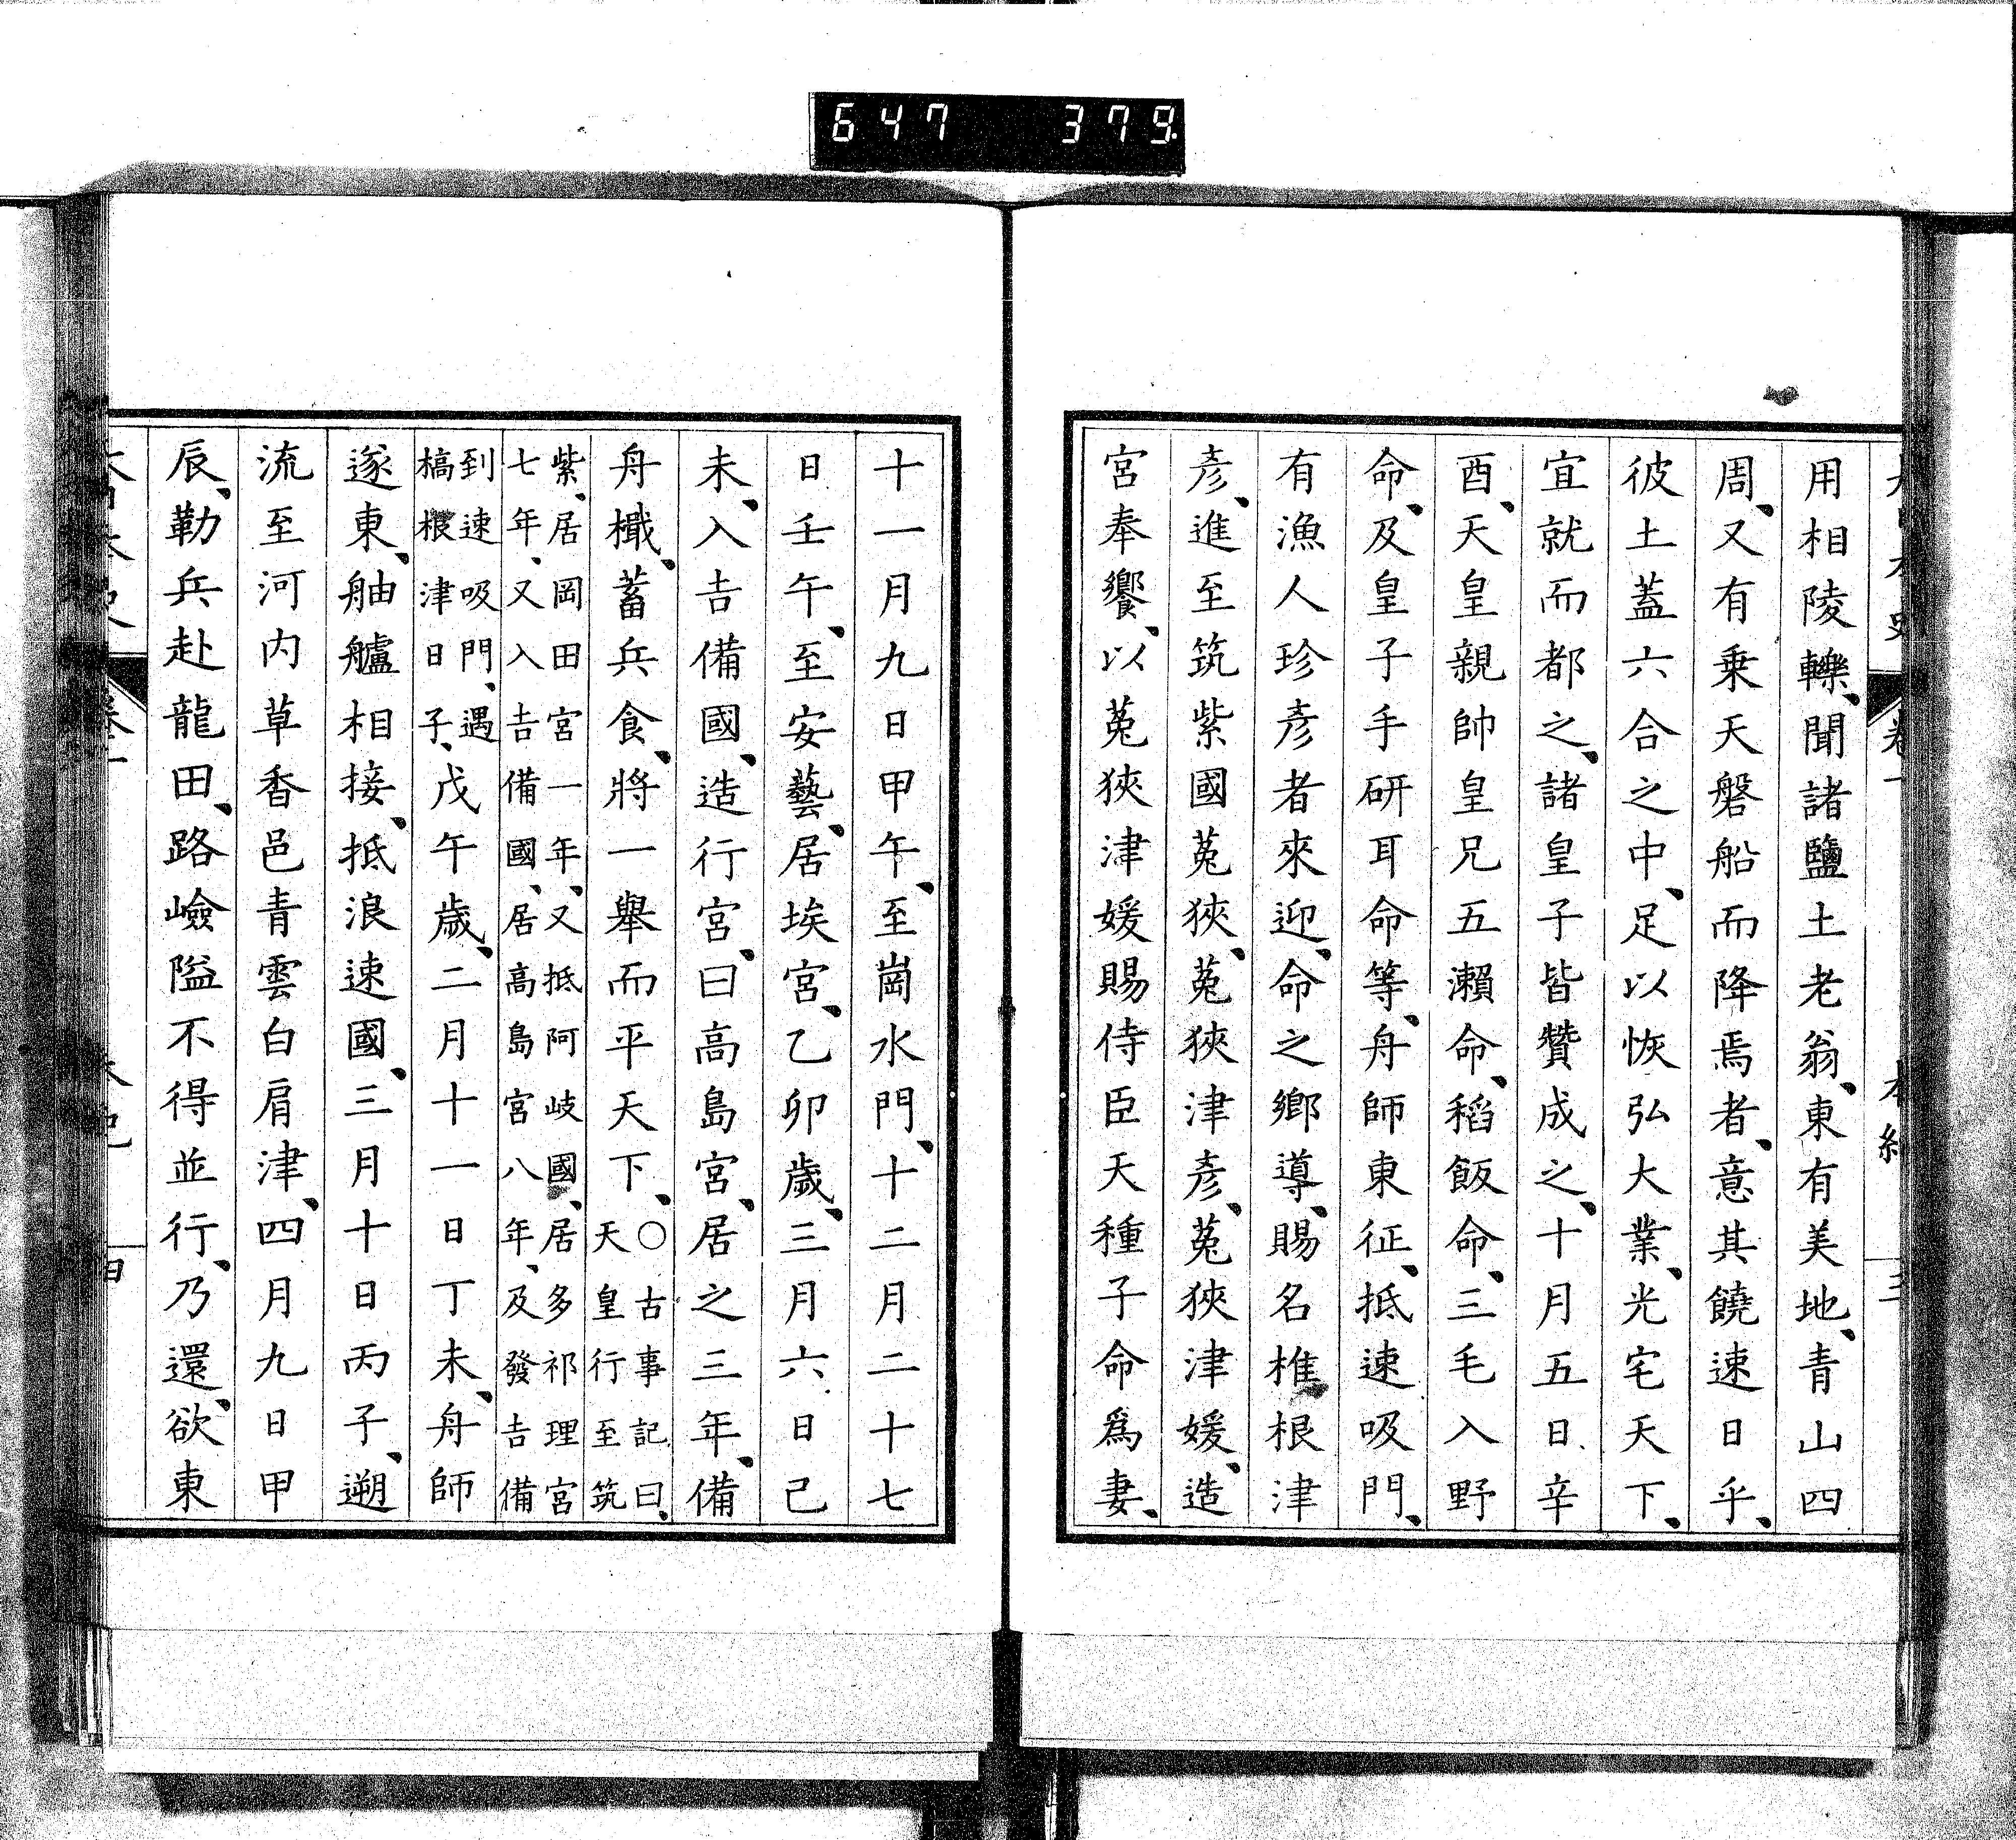 647 379
用相陵轢、聞諸鹽土老翁、東有美地、青山四
周、又有乗天磐船而降焉者、意其饒速日乎、
彼土蓋六合之中、足以恢弘大業、光宅天下、
宜就而都之、諸皇子皆贊成之、十月五日辛
酉、天皇親帥皇兄五瀬命、稻飯命、三毛入野
命、及皇子手研耳命等、舟師東征、抵速吸門、
有漁人珍彥者來迎、命之鄉導、賜名椎根津
彥、進至筑紫國菟狹、菟狹津彥、菟狹津媛、造
宮奉饗、以菟狹津媛賜侍臣天種子命爲妻、
十一月九日甲午、至崗水門、十二月二十七
日壬午、至安藝、居埃宮、乙卯歲、三月六日己
未、入吉備國、造行宮、曰高島宮、居之三年、備
舟檝、蓄兵食、將一舉而平天下、○古事記曰、天皇行至筑
紫、居岡田宮一年、又抵阿岐國、居多祁理宮七年、又入吉備國、居高島宮八年、及發吉備
到速吸門、遇槁根津日子、戊午歲、二月十一日丁未、舟師
遂東、舳艫相接、抵浪速國、三月十日丙子、遡
流至河内草香邑青雲白肩津、四月九日甲
辰、勒兵赴龍田、路嶮隘不得並行、乃還、欲東